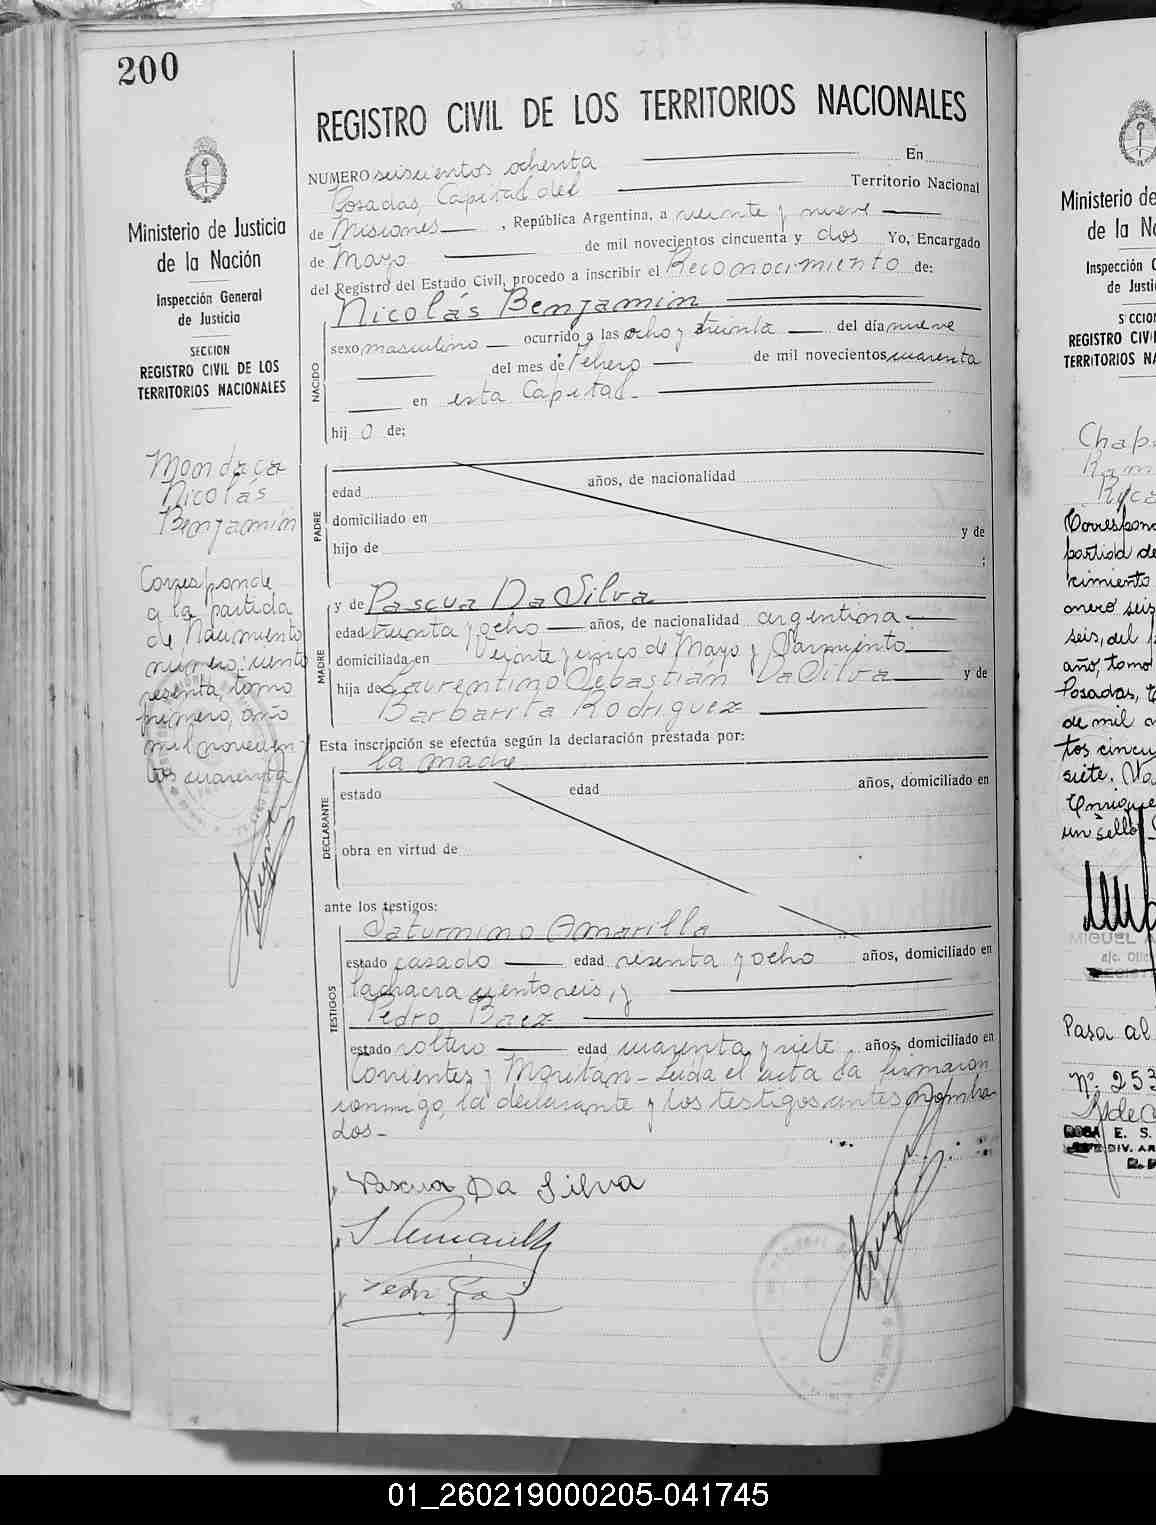 200
REGISTRO CIVIL DE LOS TERRITORIOS NACIONALES
Ministerio de Justicia
de la Nación
Inspección General
de Justicia
SECCION
REGISTRO CIVIL DE LOS
TERRITORIOS NACIONALES
Mondaca
Nicolás
Benjamín
Corresponde
a la partida
de Nacimiento
número: ciento
sesenta, tomo
primero, año
mil novecien
tos cuarenta
NUMERO seiscientos ochenta En
Posadas, Capital del Territorio Nacional
de Misiones, República Argentina, a veinte y nueve
de Mayo de mil novecientos cincuenta y dos Yo, Encargado
del Registro del Estado Civil, procedo a inscribir el Reconocimiento de:
Nicolás Benjamín
NACIDO
sexo masculino ocurrido a las ocho y treinta del día nueve
del mes de Febrero de mil novecientos cuarenta
en esta Capital.
hij o de:
PADRE
edad años, de nacionalidad
domiciliado en
hijo de y de
;
MADRE
y de Pascua Da Silva
edad treinta y ocho años, de nacionalidad argentina
domiciliada en Veinte y cinco de Mayo y Sarmiento
hija de Laurentino Sebastián Da Silva y de
Barbarita Rodriguez
Esta inscripción se efectúa según la declaración prestada por:
la madre
DECLARANTE
estado edad años, domiciliado en
obra en virtud de
ante los testigos:
TESTIGOS
Saturnino Amarilla
estado casado edad sesenta y ocho años, domiciliado en
la chacra ciento seis, y
Pedro Baez
estado soltero edad cuarenta y siete años, domiciliado en
Corrientes y Moritán - Leída el acta la firmaron
conmigo, la declarante y los testigos antes nombra
dos -
Pascua Da Silva
S Amarilla
Pedro
Ministerio de
de la Na
Inspección G
de Justi
SECCION
REGISTRO CIVI
TERRITORIOS NA
Correspon
partida de
cimiento
mero seis
seis, del
año, tomo
Posadas,
de mil
tos cincu
siete.
Enrique
un sello
MIGUEL A
Pasa al
Nº 253
E. S.
DIV. AR
01_260219000205-041745